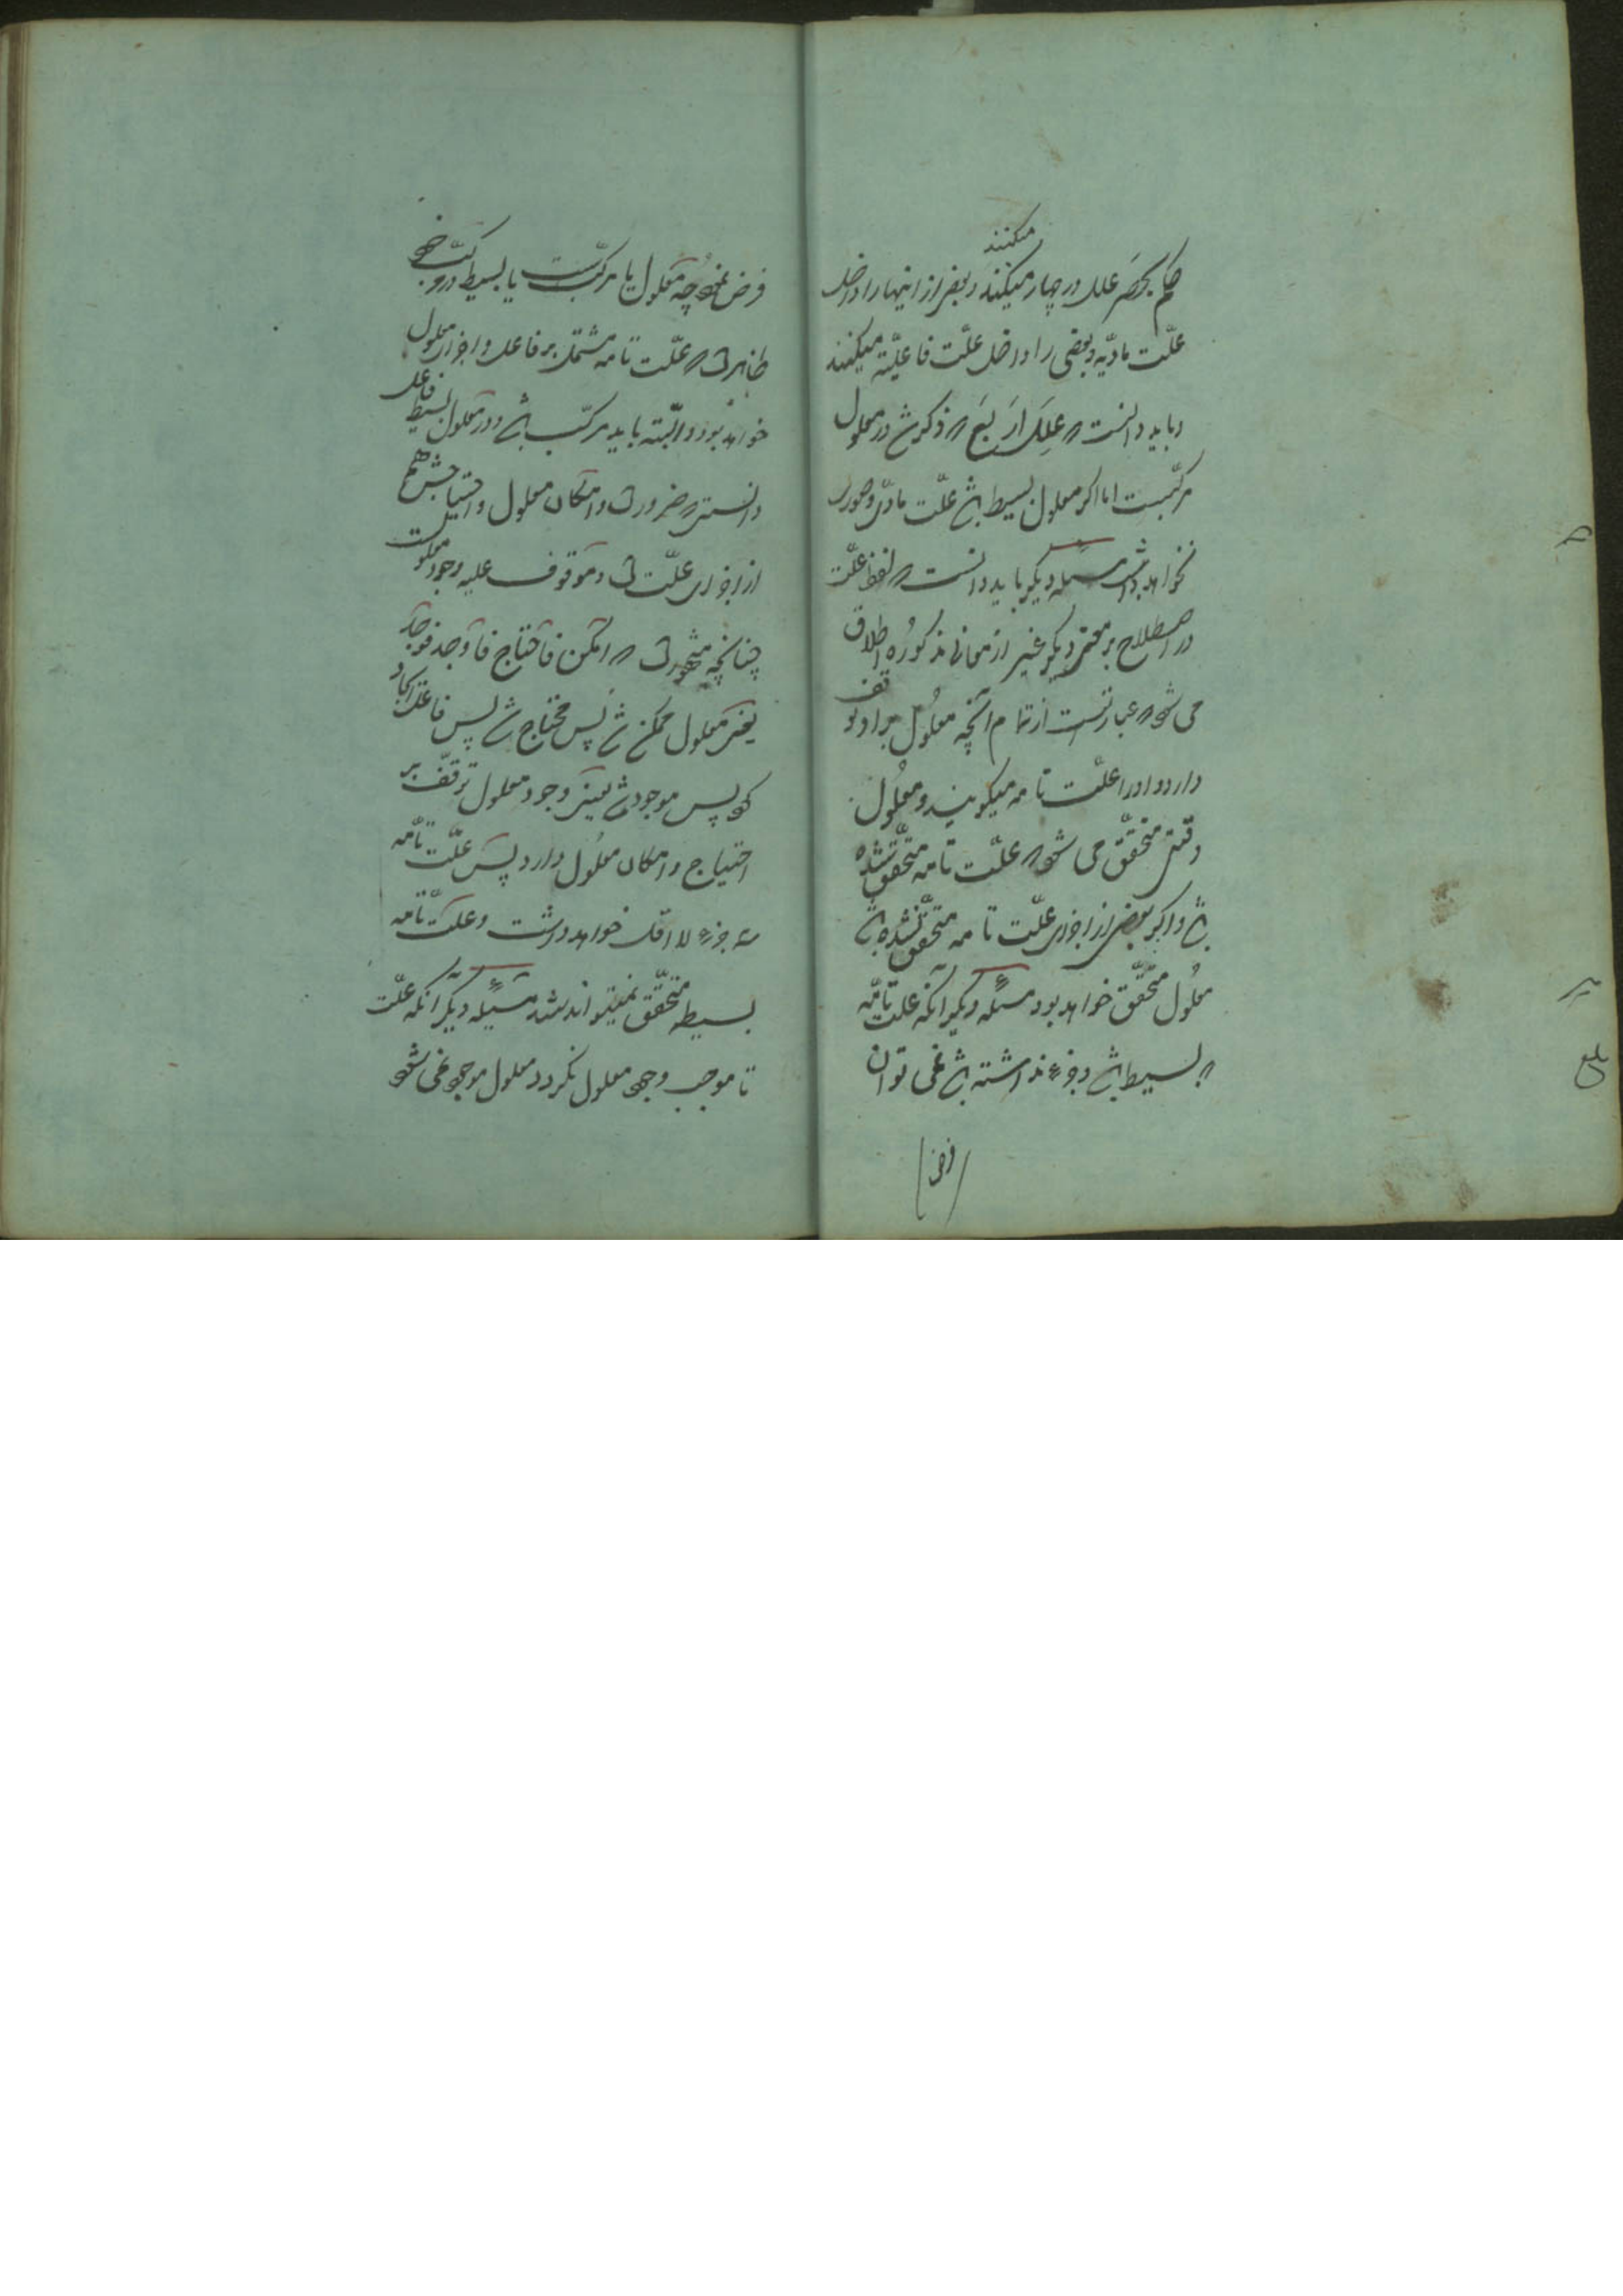 میکنند
حکم بحصر علل در چهار میکنند و بعضی از اینها را داخل
علّت مادیّه و بعضی را داخل علّت فاعلیّه میکنند
و باید دانست که علل اربع که ذکر شد در معلول
مرکّبست اما اگر معلول بسیط باشد علّت مادّی و صوری
نخواهد داشت مسئله دیگر باید دانست که لفظ علّت
در اصطلاح بر معنی دیگر غیر از معانی مذکوره اطلاق
می شود که عبارتست از تمام آنچه معلول بر او توقف
دارد و او را علّت تامه میگویند و معلول
وقتی متحقّق می شود که علّت تامه متحقّق شده
باشد و اگر بعضی از اجزای علّت تامه متحقّق نشده باشد
معلول متحّقق خواهد بود مسئله دیگر آنکه علت تامّه
که بسیط باشد و جزء نداشته باشد نمی توان
فرض
فرض نمود چه معلول یا مرکّبست یا بسیط در مرکّب خود
ظاهر است که علّت تامه مشتمل بر فاعل و اجزای معلول
خواهد بود و البّته باید مرکّب باشد و در معلول بسیط فاعل
دانستی که ضرور است و امکان معلول و احتیاجش هم
از اجزای علّت است و موقوف علیه وجود معلولست
چنانچه مشهور است که امکن فاحتاج فاوجد فوجد
یعنی معلول ممکن شد پس محتاج شد پس فاعل ایجاد
کرد پس موجود شد یعنی وجود معلول توقّف بر
احتیاج و امکان معلول دارد پس علّت تامّه
سه جزء لا اقل خواهد داشت و علّت تامّه
بسیطه متحقّق نمیتواند شد مسئله دیگر آنکه علّت
تا موجب وجود معلول نگردد معلول موجود نمی شود